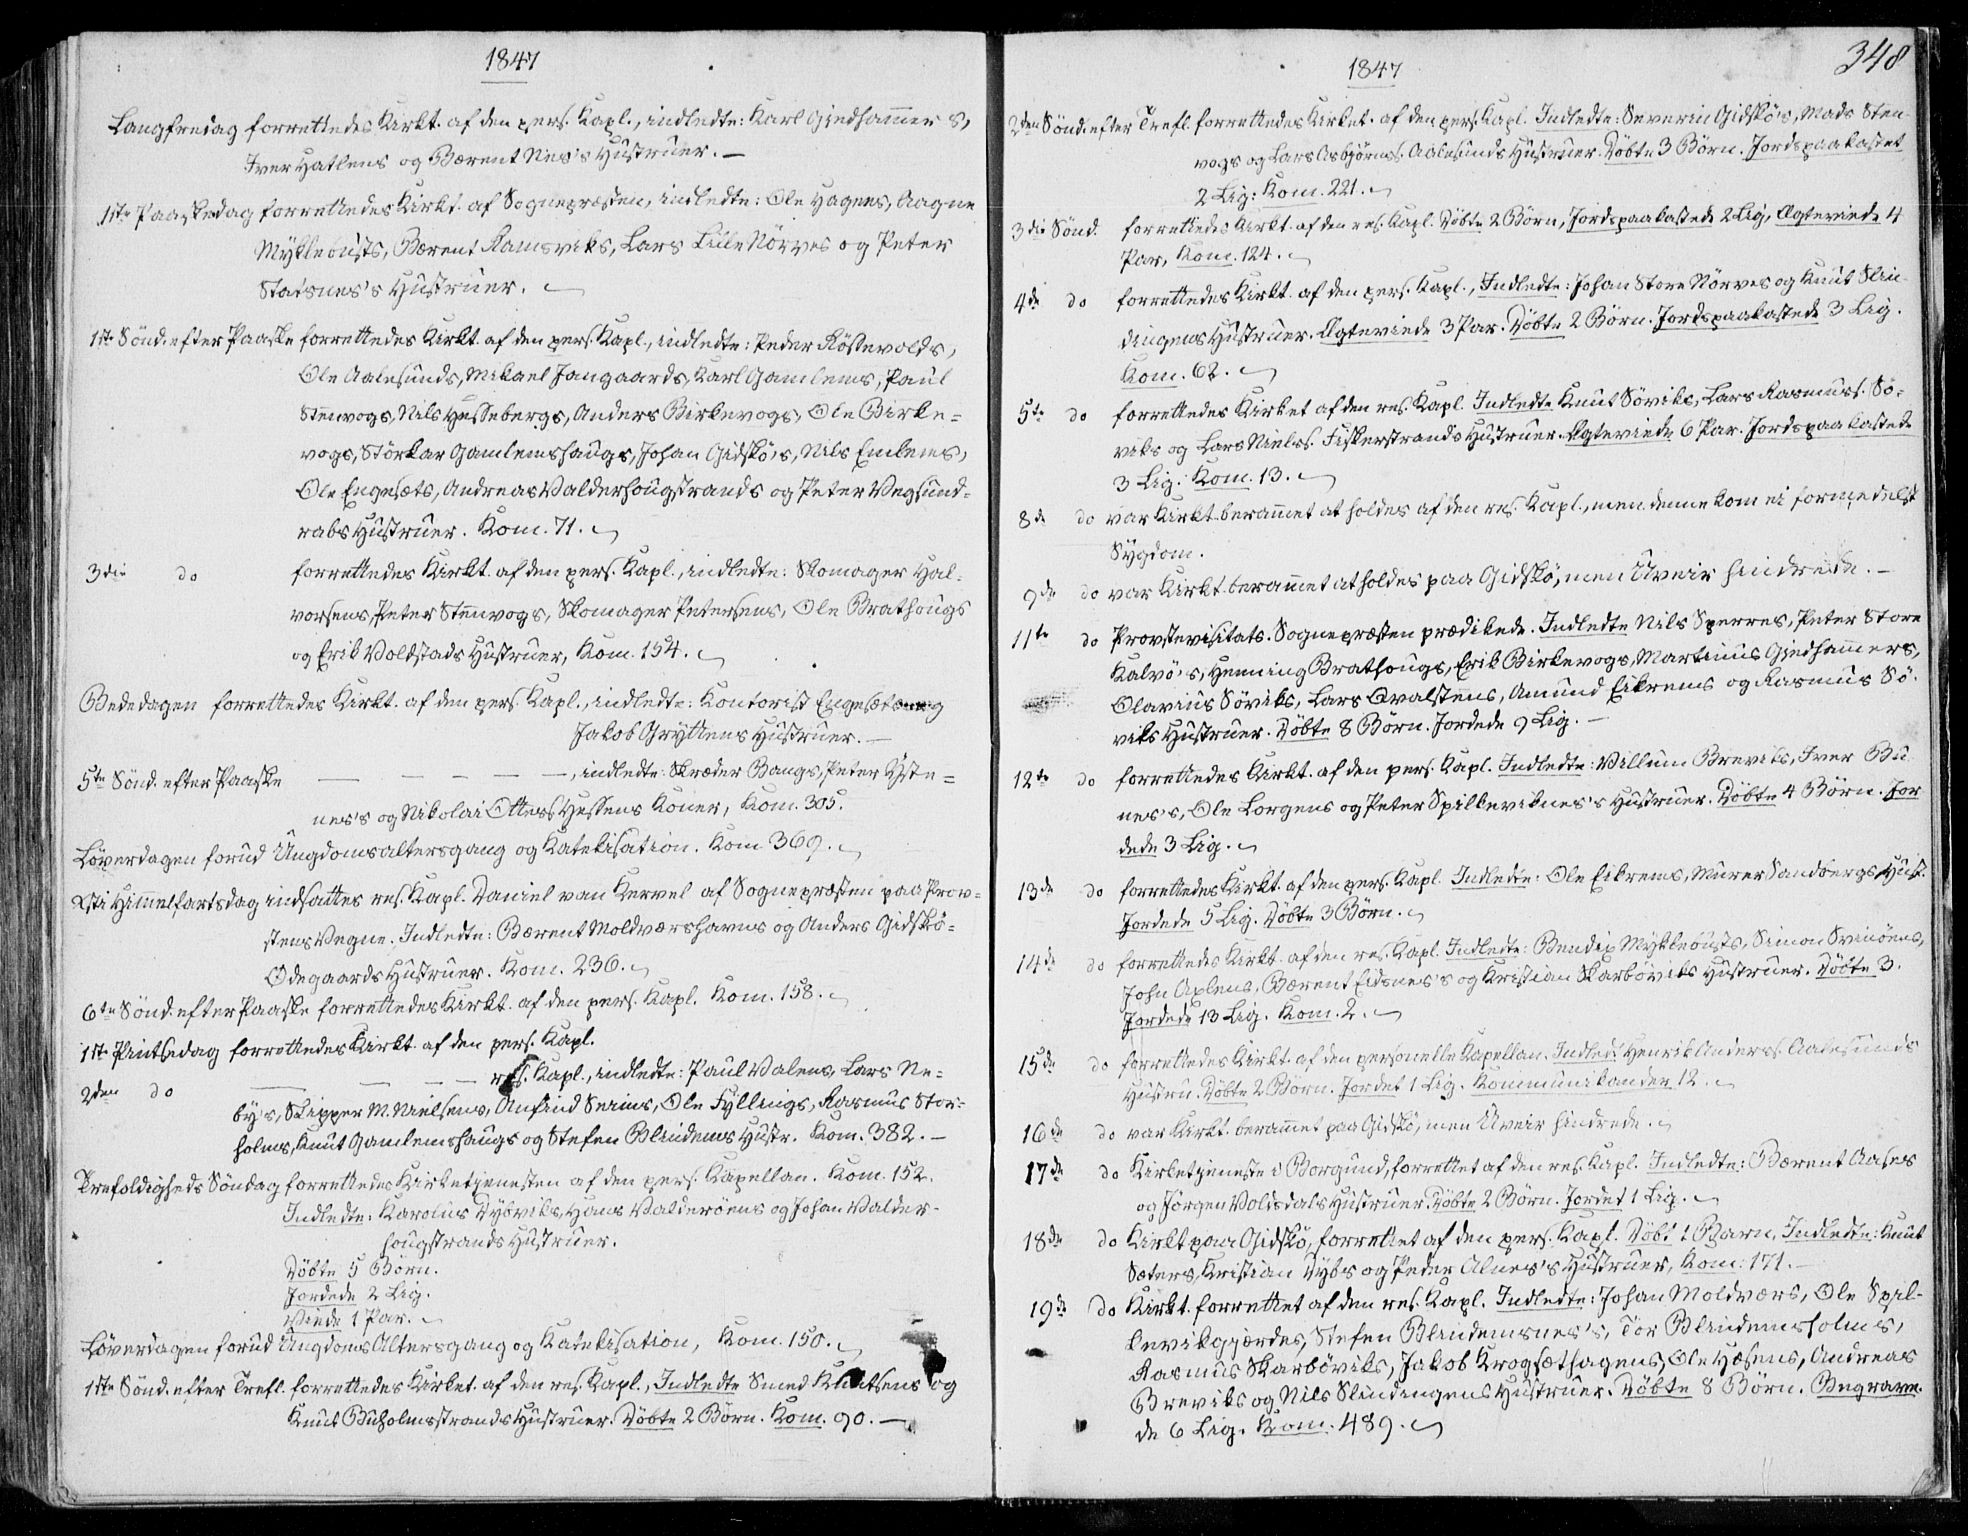 1847
Langfredag forrettedes Kirkt. af den pers. Kapl., indledte: Karl Gjedhammers,
Iver Hatlens og Bærent Nes's Hustruer. —
1ste Paaskedag forrettedes Kirkt. af Sognepræsten, indledte: Ole Hagens, Aagne
Myklebusts, Bærent Ramsviks, Lars Lille Nörves og Peter
Statsnes's Hustruer.
1ste Sönd. efter Paaske forrettedes Kirkt. af den pers. Kapl., indledte: Peder Röstevolds,
Ole Aalesunds, Mikael Jangaards, Karl Gamlems, Paul
Stenvogs, Nils Hessebergs, Anders Birkevogs, Ole Birke=
vogs, Störkar Gamlemshaugs, Johan Gidskö's, Nils Emlems,
Ole Engesæts, Andreas Valderhougstrands og Peter Vegsund=
rabs Hustruer. Kom. 71.
3die do forrettedes Kirkt. af den pers. Kapl., indledte: Skomager Hal=
vorsens, Peter Stenvogs, Skomager Petersens, Ole Brathougs
og Erik Voldstads Hustruer, Kom. 154.
Bededagen forrettedes Kirkt. af den pers. Kapl., indledte: Kontorist Engesæts og
Jakob Gryttens Hustruer. —
5te Sönd. efter Paaske — — — — —, indledte: Skræder Bangs, Peter Yste=
nes's og Nikolai Ottess. Hessens Koner, Kom. 305.
Löverdagen forud Ungdomsaltersgang og Katekisation. Kom 369.
Xsti Himmelfartsdag indsattes res. Kapl. Daniel van Kervel af Sognepræsten paa Prov=
stens Vegne. Indledte: Bærent Moldværshavns og Anders Gidskö=
Ödegaards Hustruer. Kom. 236.
6te Sönd. efter Paaske forrettedes Kirkt. af den pers. Kapl. Kom. 158.
1ste Pintsedag forrettedes Kirkt. af den pers. Kapl.
2den do — — — — res. Kapl., indledte: Paul Valens, Lars Ne=
by's, Skipper M. Nielsens, Anfind Seims, Ole Fyllings, Rasmus Stor=
holms, Knut Gamlemshaugs og Stefen Blindems Hustr. Kom. 382. —
Trefoldigheds Söndag forrettedes Kirketjenesten af den pers. Kapellan. Kom. 152.
Indledte: Karolus Dybviks, Hans Valderöens og Johan Valder-
hougstrands Hustruer.
Döbte 5 Börn.
Jordede 2 Lig.
Viede 1 Par.
Löverdagen forud Ungdoms Altersgang og Katekisation, Kom. 150.
1ste Sönd. efter Trefl. forrettedes Kirket. af den res. Kapl., Indledte Smed Knutsens og
Knus Buholmsstrands Hustruer. Döbte 2 Börn. Kom. 90. —
1847
348
2den Sönd. efter Trefl. forrettedes Kirket. af den pers. Kapl. Indledte: Severin Gidskö's, Mads Sten-
vogs og Lars Asbjörnss. Aalesunds Hustruer. Döbte 3 Börn. Jordspaakastet
2 Lig: Kom. 221.
3die Sönd. forrettedes Kirkt. af den res. Kapl. Döbte 2 Börn, Jordspaakastede 2 Lig, Ægteviede 4
Par, Kom. 124.
4de do forrettedes Kirkt. af den pers. Kapl., Indledte: Johan Store Nörves og Knut Slin-
dingens Hustruer. Ægteviede 3 Par. Döbte 2 Börn. Jordspaakastede 3 Lig.
Kom. 62.
5te do forrettedes Kirket af den res. Kapl. Indledte Knut Söviks, Lars Rasmuss. Sö=
viks og Lars Nielss. Fiskerstrands Hustruer. Ægteviede 6 Par. Jordspaakastede
3 Lig. Kom. 13.
8de do var Kirkt. berammet at holdes af den res. Kapl., men denne kom ei formedelst
Sygdom.
9de do var Kirkt. berammet at holdes paa Gidskö, men Uveir hindrede. —
11te do Provstevisitats. Sognepræsten prædikede. Indledte Nils Sperres, Peter Store
Kalvö's, Henning Brathougs, Erik Birkevogs, Martinus Gjedhammers,
Olavius Söviks, Lars Qvalstens, Amund Eikrems og Rasmus Sö-
viks Hustruer. Döbte 8 Börn. Jordede 9 Lig. —
12te do forrettedes Kirkt. af den pers. Kapl. Indledte: Villum Breviks, Iver Bu
nes's, Ole Lorgens og Peter Spilkeviknes's Hustruer. Döbte 4 Börn. Jor
dede 3 Lig.
13de do forrettedes Kirkt. af den pers. Kapl. Indledte: Ole Eikrems, Murer Sandbergs Hust.
Jordede 5 Lig. Döbte 3 Börn.
14de do forrettedes Kirkt. af den res. Kapl. Indledte: Bendix Myklebusts, Simon Svinöens,
John Axlens, Bærent Eidsnes's og Kristian Skarböviks Hustruer. Döbte 3.
Jordede 13 Lig. Kom. 2.
15de do forrettedes Kirkt. af den personelle Kapellan. Indledt Henrik Anderss. Aalesunds
Hustru. Döbte 2 Börn. Jordet 1 Lig. Kommunikander 12.
16de do var Kirkt. berammet paa Gidskö, men Uveir hindrede.
17de do Kirketjeneste i Borgund, forrettet af den res. Kapl. Indledte: Bærent Aases
og Jörgen Voldsdals Hustruer. Döbte 2 Börn. Jordet 1 Lig.
18de do Kirkt paa Gidskö, forrettet af den pers. Kapl. Döbt 1 Barn, Indledte: Knut
Sæters, Kristian Dybs og Peder Alnes's Hustruer, Kom: 171.
19de do Kirkt. forrettet af den res. Kapl. Indledte: Johan Moldværs, Ole Spil-
kevikgjærdes, Stefen Blindemsnes's, Tor Blindemsholms,
Rasmus Skarböviks, Jakob Krogsæthagens, Ole Hæsens, Andreas
Breviks og Nils Slindingens Hustruer. Döbte 8 Börn. Begrave-
de 6 Lig. Kom. 489.